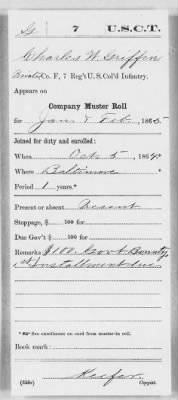 G 7 U.S.C.T.
Charles W. Griffin
Private, Co. F, 7 Reg't U.S. Col'd Infantry.
Appears on
Company Muster Roll
for Jan & Feb, 1865.
Joined for duty and enrolled:
When Oct. 5, 1864.
Where Baltimore
Period 1 years.*
Present or absent Present
Stoppage, $ 100 for
Due Gov't $ 100 for
Remarks $100. Govt Bounty
1st Installment due
* See enrollment on card from muster-in roll.
Book mark:
Keefer
(858c) Copyist.